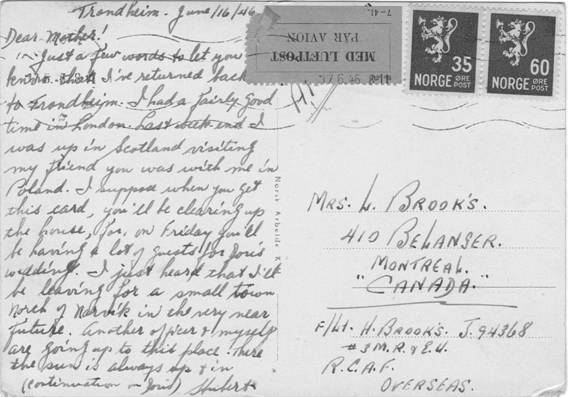 Trondheim. June/16/46
Dear Mother!
Just a few words to let you
know that I've returned back
to trondheim. I had a fairly good
time in London. Last week end I
was up in Scotland visiting
my friend you was with me in
Poland. I suppose when you get
this card, you'll be clearing up
the house, for, on Friday you'll
be having a lot of guests for Doris
wedding. I just heard that I'll
be leaving for a small town
North of Narvik in the very near
future. Another officer & myself
are going up to this place. There
the sun is always up & in
(continuation on Doris) Hubert
MED LUFTPOST
PAR AVION
7-41.
NORGE 35 ØRE
POST
NORGE 60 ØRE
POST
Norsk Arbeide
MRS. L. BROOK'S.
410 BELANGER.
MONTREAL.
"CANADA."
F/Lt. H. BROOKS. J. 94368
#3 M.R. & E.U.
R.C.A.F.
OVERSEAS.